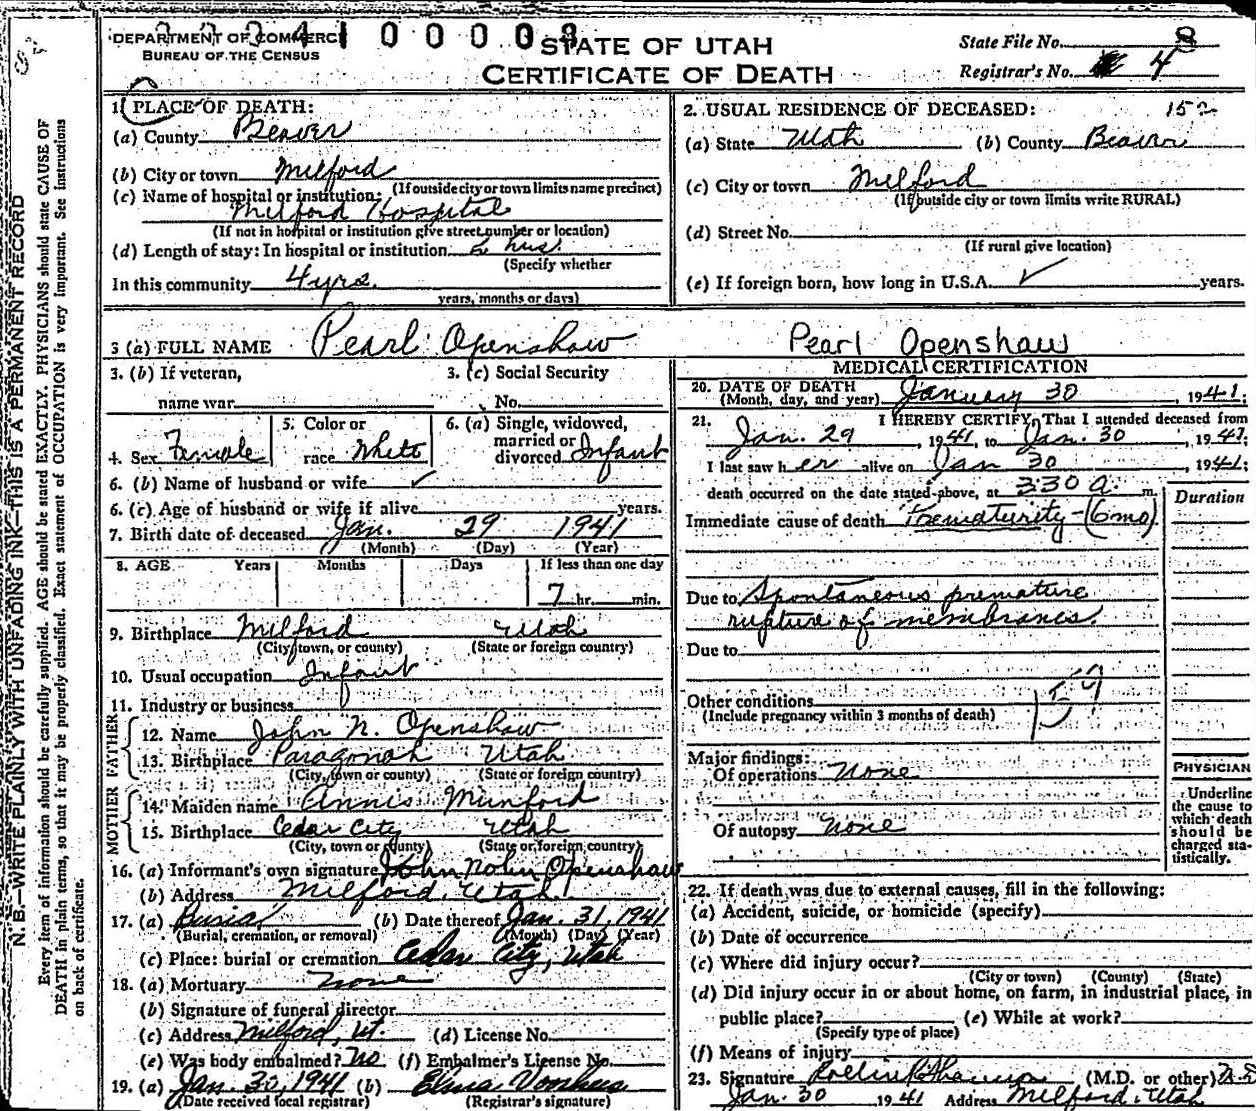 DEPARTMENT OF COMMERCE
BUREAU OF THE CENSUS
STATE OF UTAH
CERTIFICATE OF DEATH
State File No. 8
Registrar's No. 4
N. B.—WRITE PLAINLY WITH UNFADING INK—THIS IS A PERMANENT RECORD
Every item of information should be carefully supplied. AGE should be stated EXACTLY. PHYSICIANS should state CAUSE OF
DEATH in plain terms, so that it may be properly classified. Exact statement of OCCUPATION is very important. See instructions
on back of certificate.
1. PLACE OF DEATH:
(a) County Beaver
(b) City or town Milford
(If outside city or town limits name precinct)
(c) Name of hospital or institution:
Milford Hospital
(If not in hospital or institution give street number or location)
(d) Length of stay: In hospital or institution 2 hrs.
(Specify whether
In this community 4 yrs.
years, months or days)
2. USUAL RESIDENCE OF DECEASED: 152
(a) State Utah (b) County Beaver
(c) City or town Milford
(If outside city or town limits write RURAL)
(d) Street No.
(If rural give location)
(e) If foreign born, how long in U.S.A. ✓ years.
3 (a) FULL NAME Pearl Openshaw Pearl Openshaw
3. (b) If veteran,
name war
3. (c) Social Security
No.
4. Sex Female
5. Color or
race White
6. (a) Single, widowed,
married or
divorced Infant
6. (b) Name of husband or wife ✓
6. (c) Age of husband or wife if alive years.
7. Birth date of deceased Jan. 29 1941
(Month) (Day) (Year)
8. AGE Years Months Days If less than one day
7 hr. min.
9. Birthplace Milford Utah
(City, town, or county) (State or foreign country)
10. Usual occupation Infant
11. Industry or business
FATHER
12. Name John N. Openshaw
13. Birthplace Paragonah Utah
(City, town or county) (State or foreign country)
MOTHER
14. Maiden name Annis Munford
15. Birthplace Cedar City Utah
(City, town or county) (State or foreign country)
16. (a) Informant's own signature John Nolin Openshaw
(b) Address Milford, Utah
17. (a) Burial (b) Date thereof Jan. 31, 1941
(Burial, cremation, or removal) (Month) (Day) (Year)
(c) Place: burial or cremation Cedar City, Utah
18. (a) Mortuary none
(b) Signature of funeral director
(c) Address Milford, Ut. (d) License No.
(e) Was body embalmed? no (f) Embalmer's License No.
19. (a) Jan. 30, 1941 (b) Elma Voorhees
(Date received local registrar) (Registrar's signature)
MEDICAL CERTIFICATION
20. DATE OF DEATH
(Month, day, and year) January 30, 1941.
21. I HEREBY CERTIFY, That I attended deceased from
Jan. 29, 1941, to Jan. 30, 1941.
I last saw her alive on Jan 30, 1941;
death occurred on the date stated above, at 3:30 a. m.
Duration
Immediate cause of death Prematurity - (6 mo).
Due to Spontaneous premature
rupture of membranes.
Due to
Other conditions
(Include pregnancy within 3 months of death)
Major findings:
Of operations None
Of autopsy None
PHYSICIAN
Underline
the cause to
which death
should be
charged sta-
tistically.
22. If death was due to external causes, fill in the following:
(a) Accident, suicide, or homicide (specify)
(b) Date of occurrence
(c) Where did injury occur?
(City or town) (County) (State)
(d) Did injury occur in or about home, on farm, in industrial place, in
public place? (e) While at work?
(Specify type of place)
(f) Means of injury
23. Signature (M.D. or other)
Jan. 30 1941 Address Milford, Utah